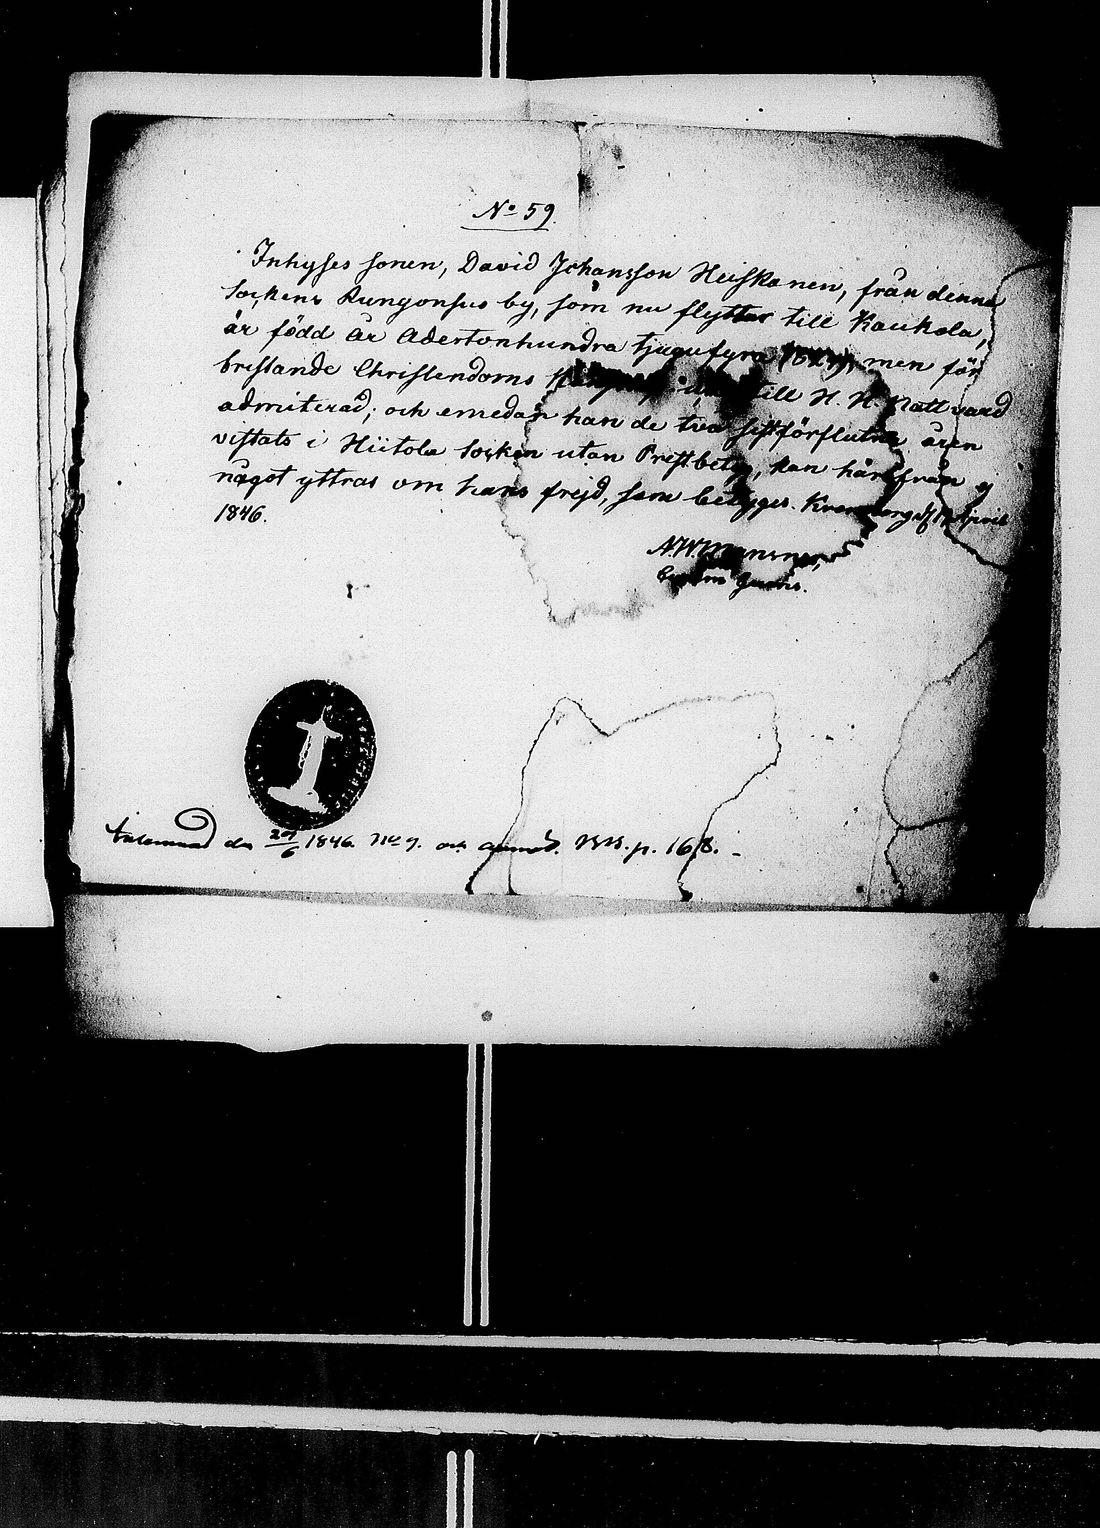 No 59
Inhyses sonen, David Johansson Heiskanen, från denna
Sockens Kungonsuo by, som nu flyttar till Kaukola,
är född år Adertonhundra tjugufyra (1824), men för
bristande Christendoms till H. H. Nattvard
admitterad; och emedan han de två sistförflutna åren
vistats i Hiitola socken utan Prestbetyg, kan härifrån ej
något yttras om hans frejd, som betygas. Kronoborg d. April
1846.
den 29/6 1846. No 9. och p. 168.